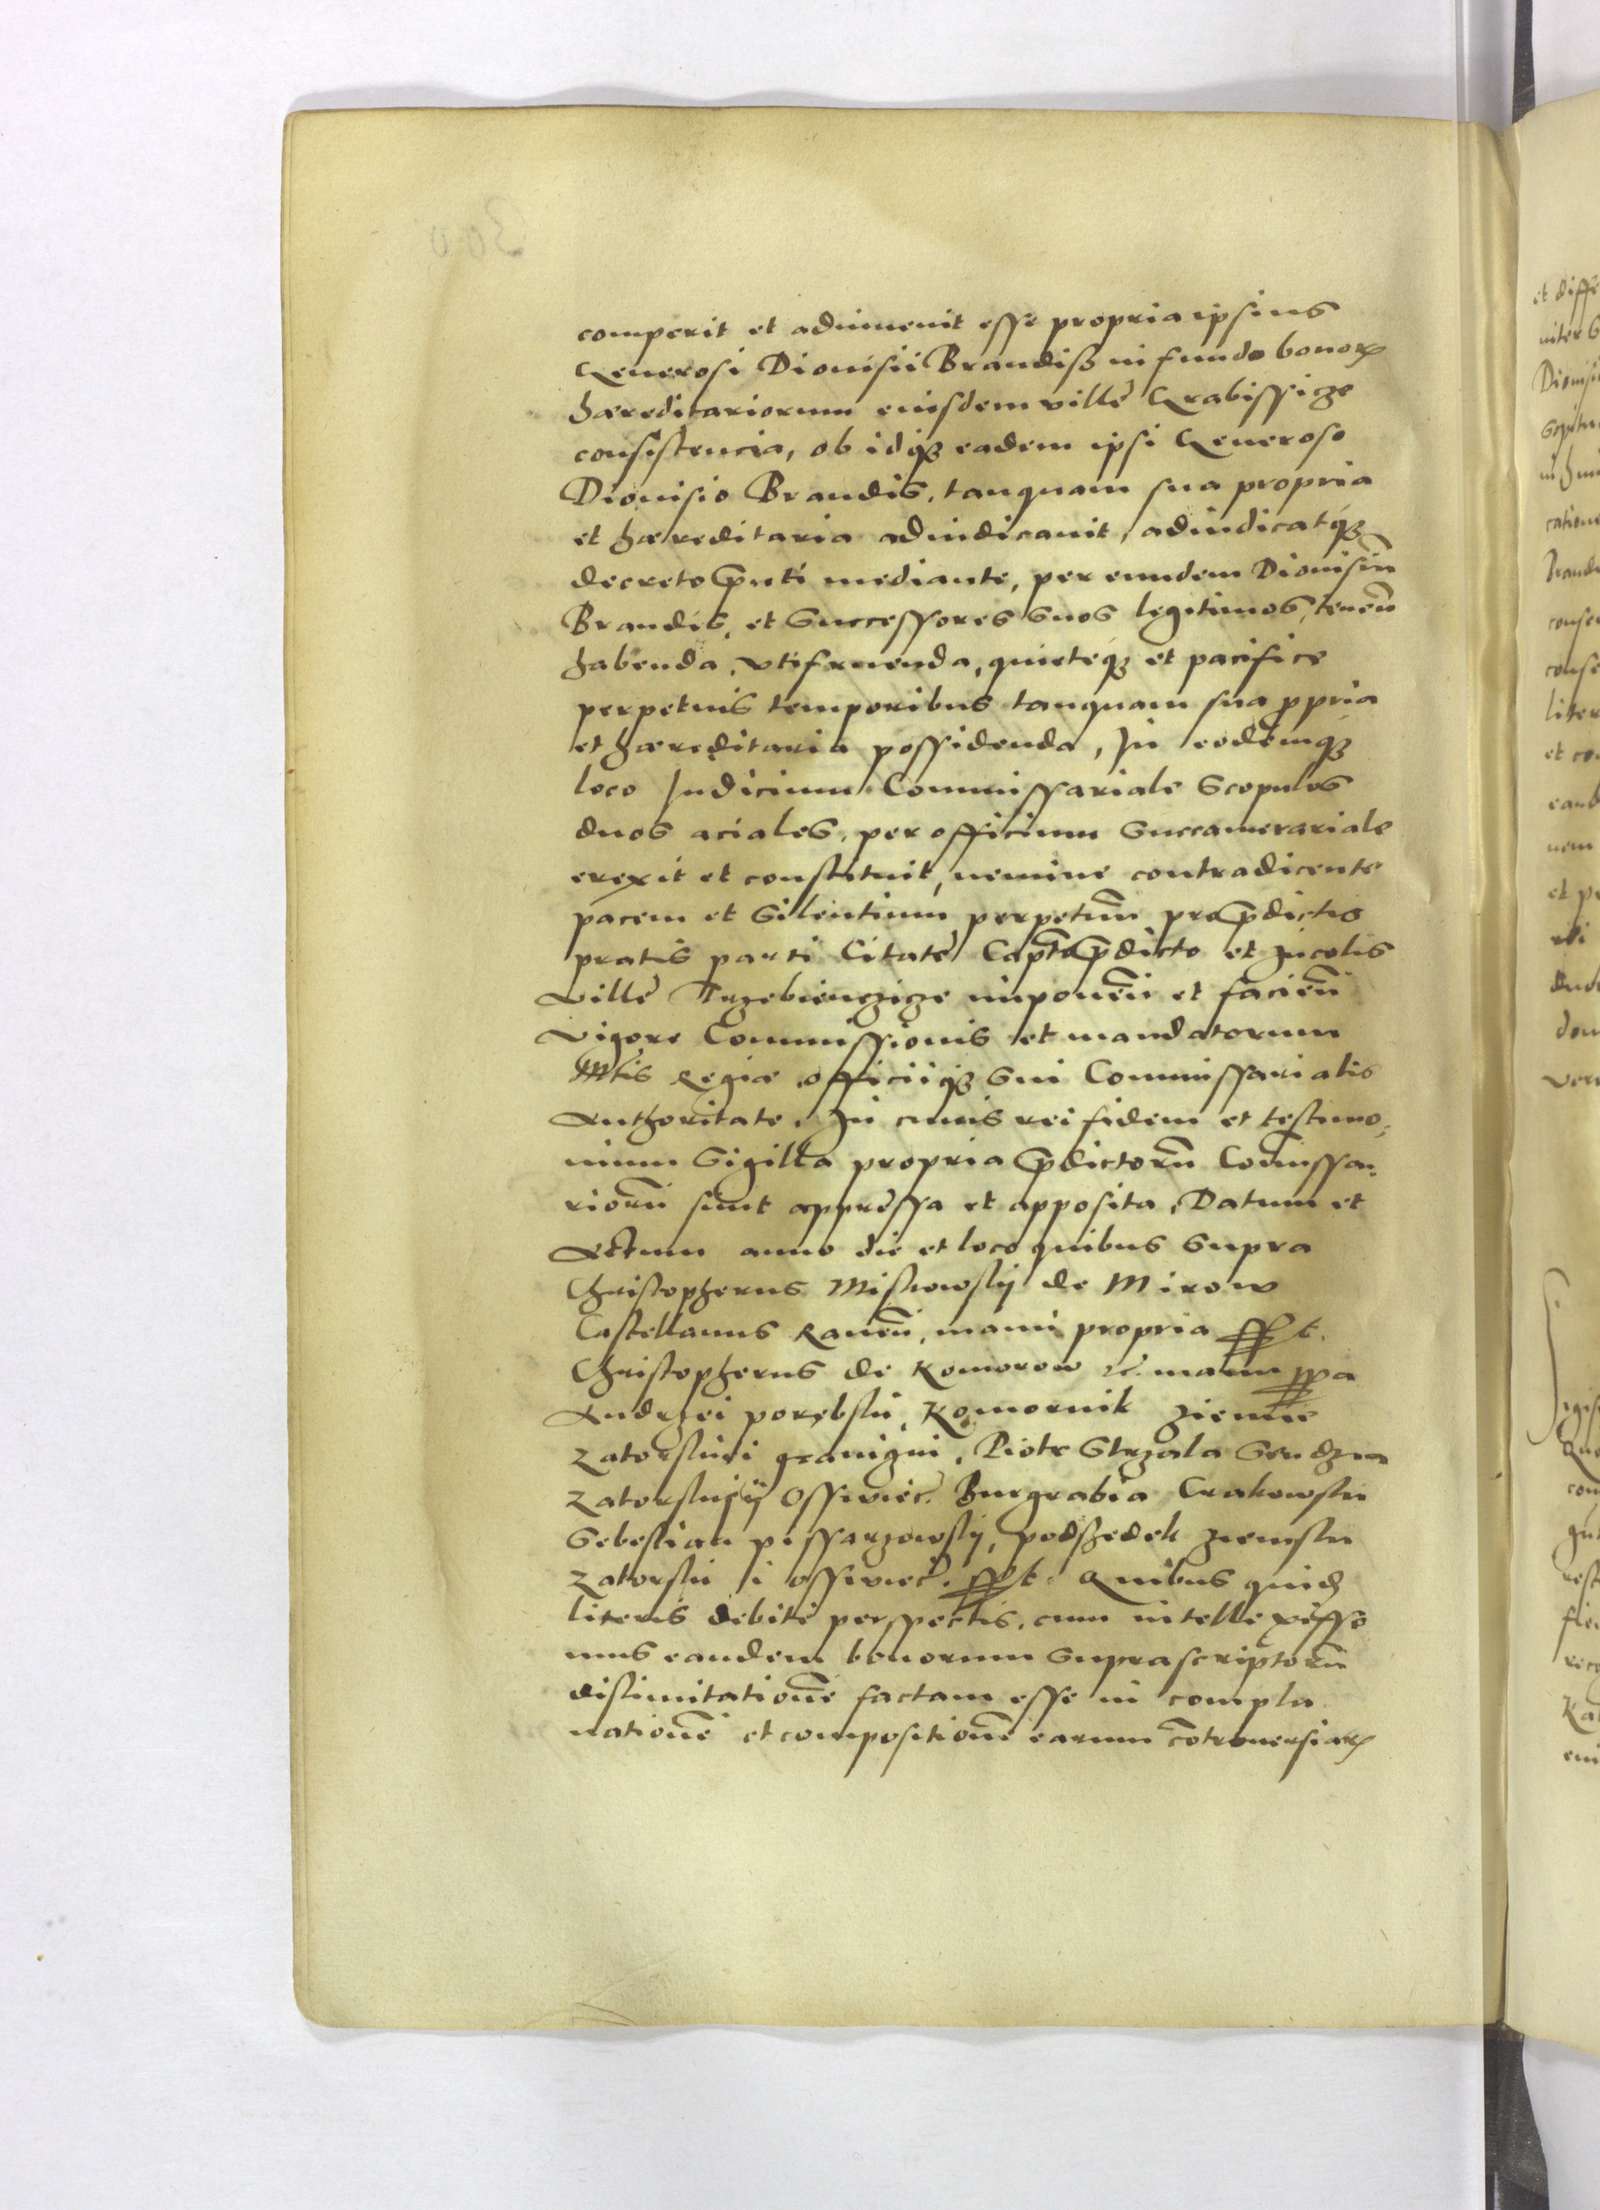 comperit et adinuenit esse propria ipsius
Generosi Dionisii Brandiß in fundo bonoꝝ
hæreditariorum eiusdem villę Grabissicze
consistencia, ob idqꝫ eadem ipsi Generoso
Dionisio Brandis, tanquam sua propria
et hæreditaria adiudicauit, adiudicatqꝫ
decreto pn̄ti mediante, per eundem Dionisiū
Brandis, et Successores suos legitimos, tenen̄
habenda, vtifruenda, quieteqꝫ et pacifice
perpetuis temporibus tanquam sua ꝓpria
et hæreditaria possidenda, In eodemqꝫ
loco Iudicium Commissariale Scopulos
duos aciales, per officium Succamerariale
erexit et constituit, nemine contradicente
pacem et Silentium perpetuū pro p̄dictis
pratis parti Citatę Capto p̄dicto et Incolis
villę Trzebienczicze imponen̄ et facien̄
vigore Commissionis et mandatorum
Mtis Regiæ officiiqꝫ sui Commissarialis
Authoritate. In cuius rei fidem et testimo,
nium Sigilla propria p̄dictorū Com̄issa-
riorū sunt appressa et apposita, Datum et
Actum anno die et loco quibus supra
Christopherus Miskowskij de Mirow
Castellanus Rauen̄, manu propria sspt.
Christopherus de Komorow etc. manu ppa
Andrzei porębski, Komornik ziemie
Zatorskiei graniczni, Piotr Strzala Sendzia
Zatorskij ij Osswiec. Burgrabia Crakowski
Sebestian pissarzowskij, podszedek ziemski
Zatorski i osswiec. sspt. Quibus quidꝫ
literis debite perspectis, cum intellexisse
mus eandem bonorum suprascriptorū
dislimitationē factam esse in compla
nationē et compositionē earum cōtrouersiaꝝ